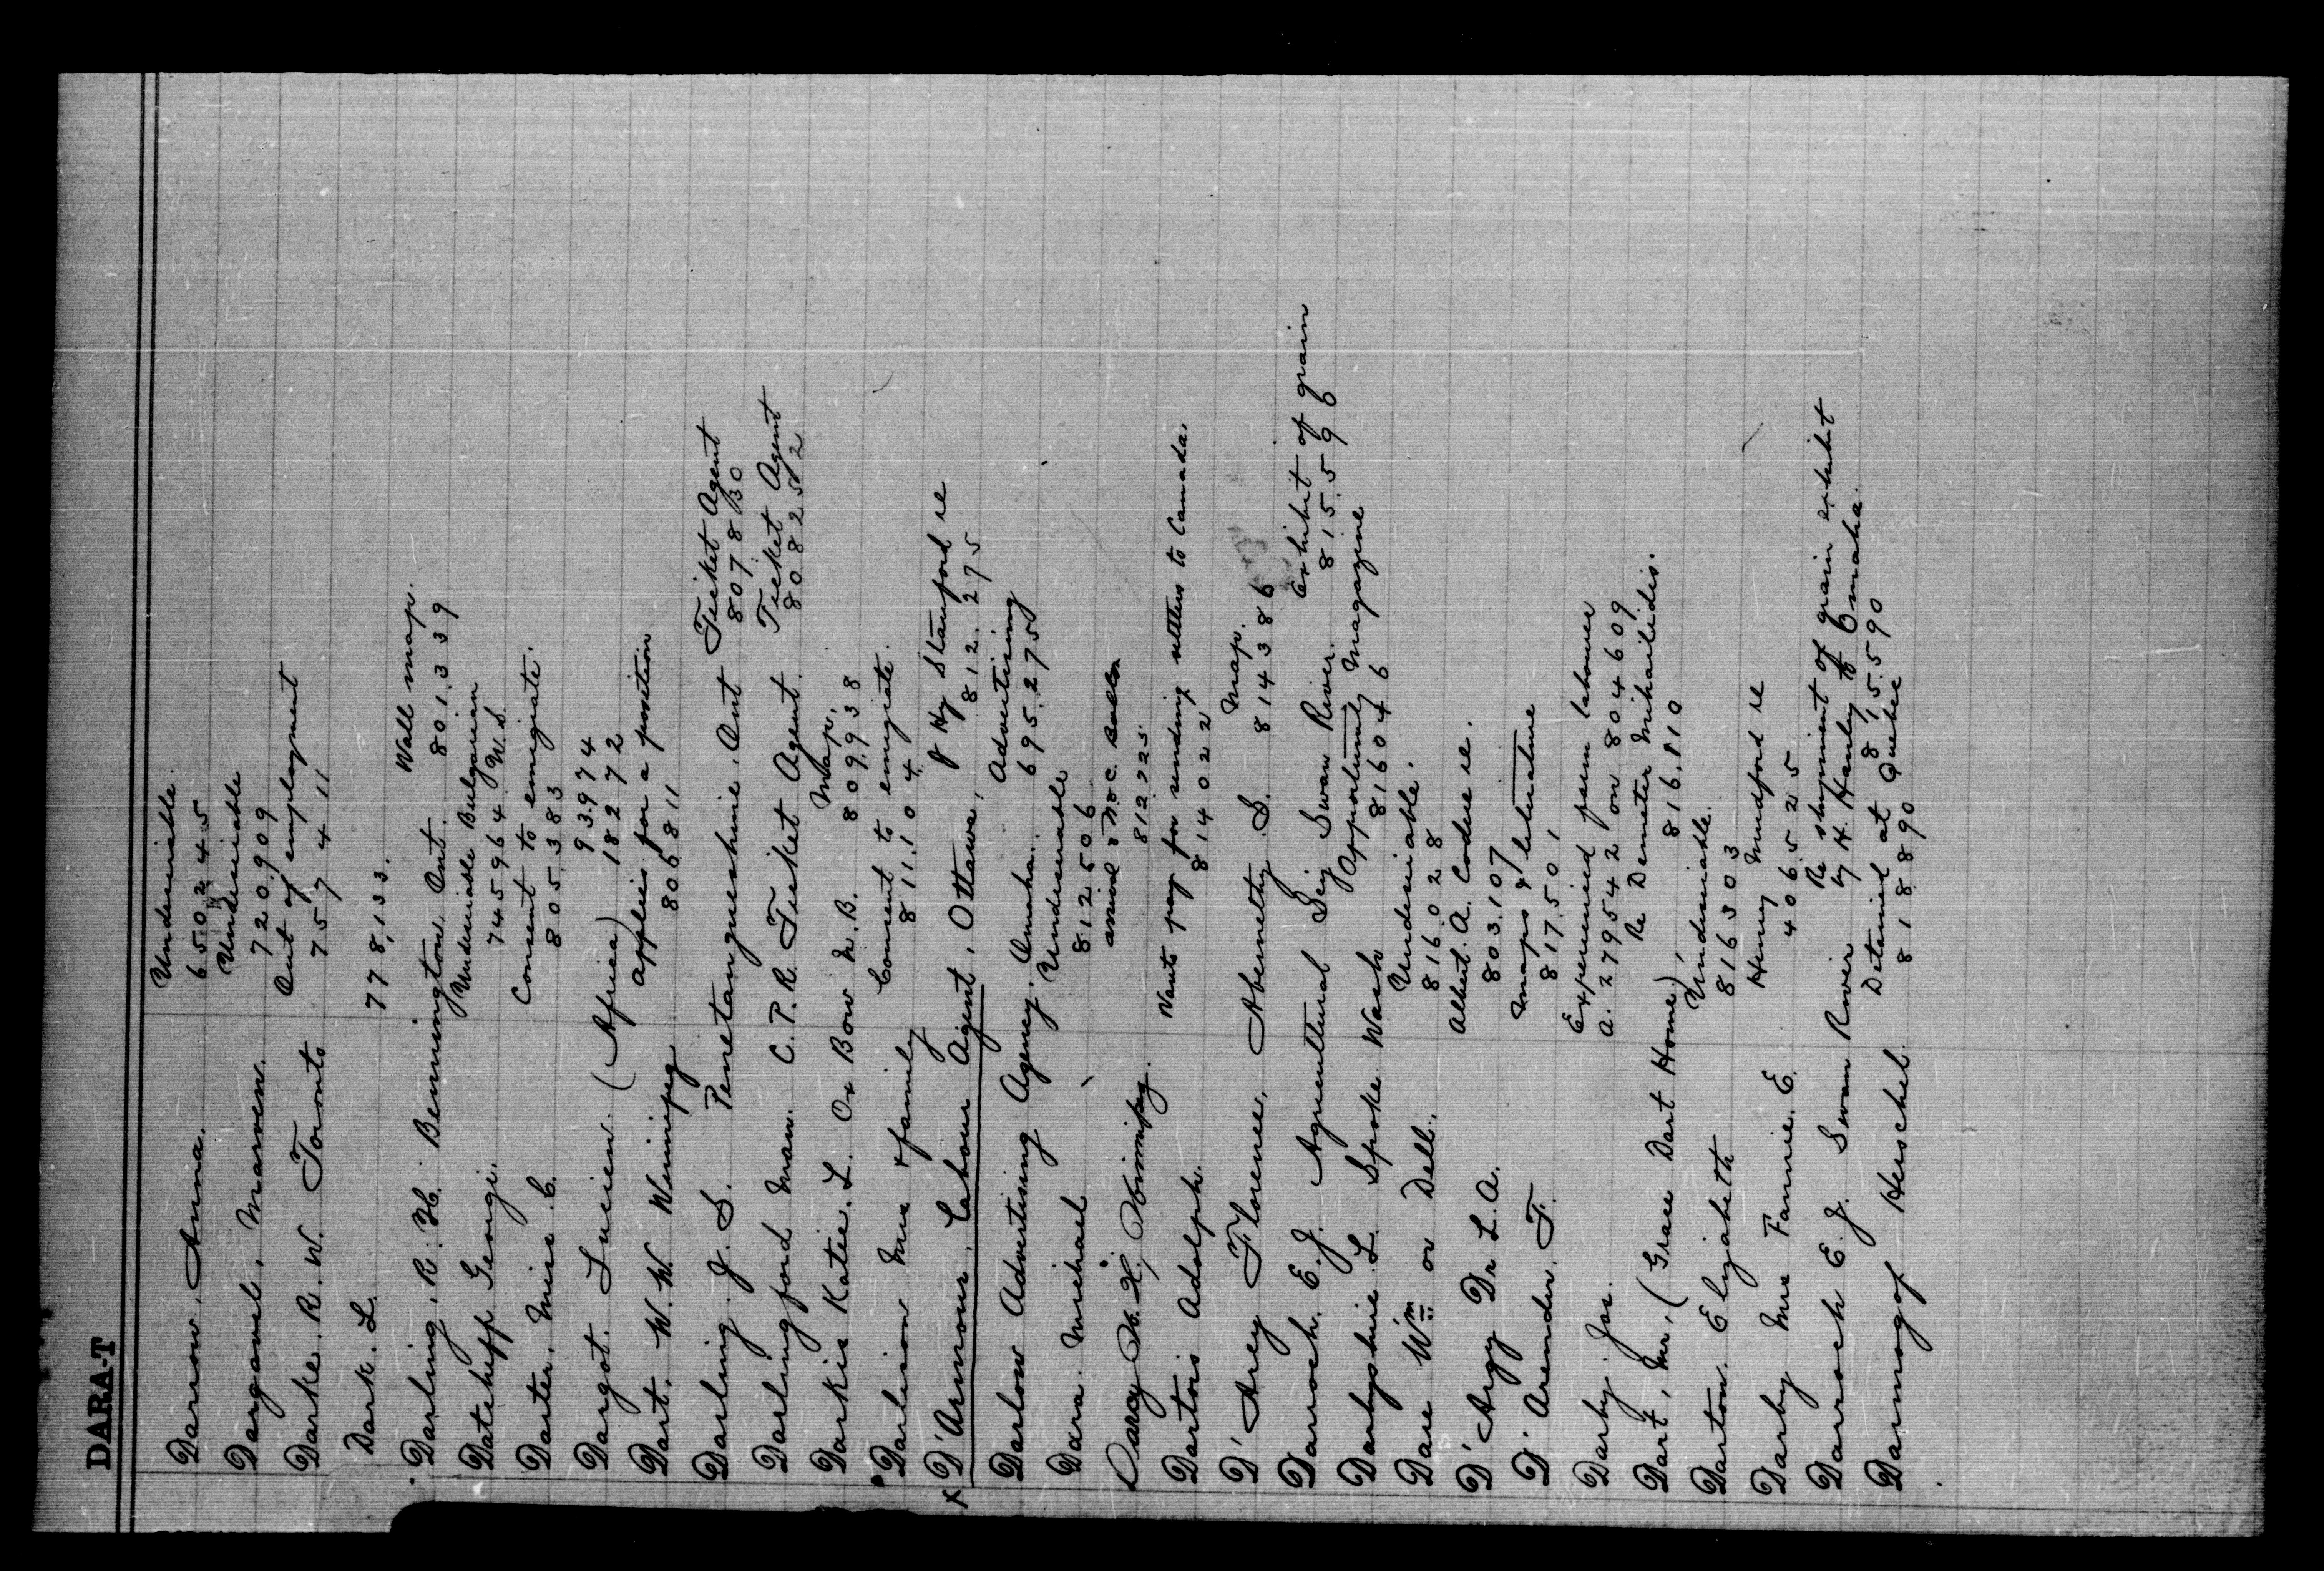 DARA-T
Darrow, Anna. Undesirable.
650245
Darganel, Marven. Undesirable
720909
Darke. R. W. Toronto Out of employment
757411
Dark. L. 778,133.
Darling, R. H. Bennington, Ont. Wall map.
801339
Datcheff Georgi. Undesirable Bulgarian
745964 W.S.
Darter, Miss C. Consent to emigrate.
805383
Dargot. Lucien. (Africa) 93974
18272
Dart. W. W. Winnipeg applies for a position
806811
Darling. J. S. Penetanguishine, Ont Ticket Agent
807830
Darlingford Man. C.P.R. Ticket Agent. Ticket Agent
808252
Darkis Katie. L. Ox Bow N.B. Map.
809938
Darlison Mrs & family Consent to emigrate.
811104
x D'Armour, Labour Agent, Ottawa, J Hy Stamford re
812275
Darlow Advertising Agency. Omaha. Advertising
695275
Dara. Michael Undesirable
812506
Darcy Winnipeg.
812225
Dartois Adolph. Wants pay for sending settlers to Canada.
814022
D'Arcy Florence, Abernethy S. Map.
814386
Darroch. E. J. Agricultural Swan River. Exhibit of grain
815596
Darbyshire L. Spoke Wash Opportunity Magazine
816046
Dare Wm or Dell. Undesirable.
816028
D'Argy Dr L. A. Albert. A. Codere re.
803107
D'Arender. F. Maps & literature
817501
Darby. Jos. Experienced farm labourer
A. 279542 on 804609
Dart, Mr, (Grace Dart Home), Re Demeter Mihailidis.
816,810
Darton. Elizabeth Undesirable.
816303
Darby Mrs Fannie. E. Henry Mudford re
406525
Darroch E. J. Swan River Re shipment of grain exhibit
by H. Hanley to Omaha.
815590
Darmogof Herschel. Detained at Quebec
818890